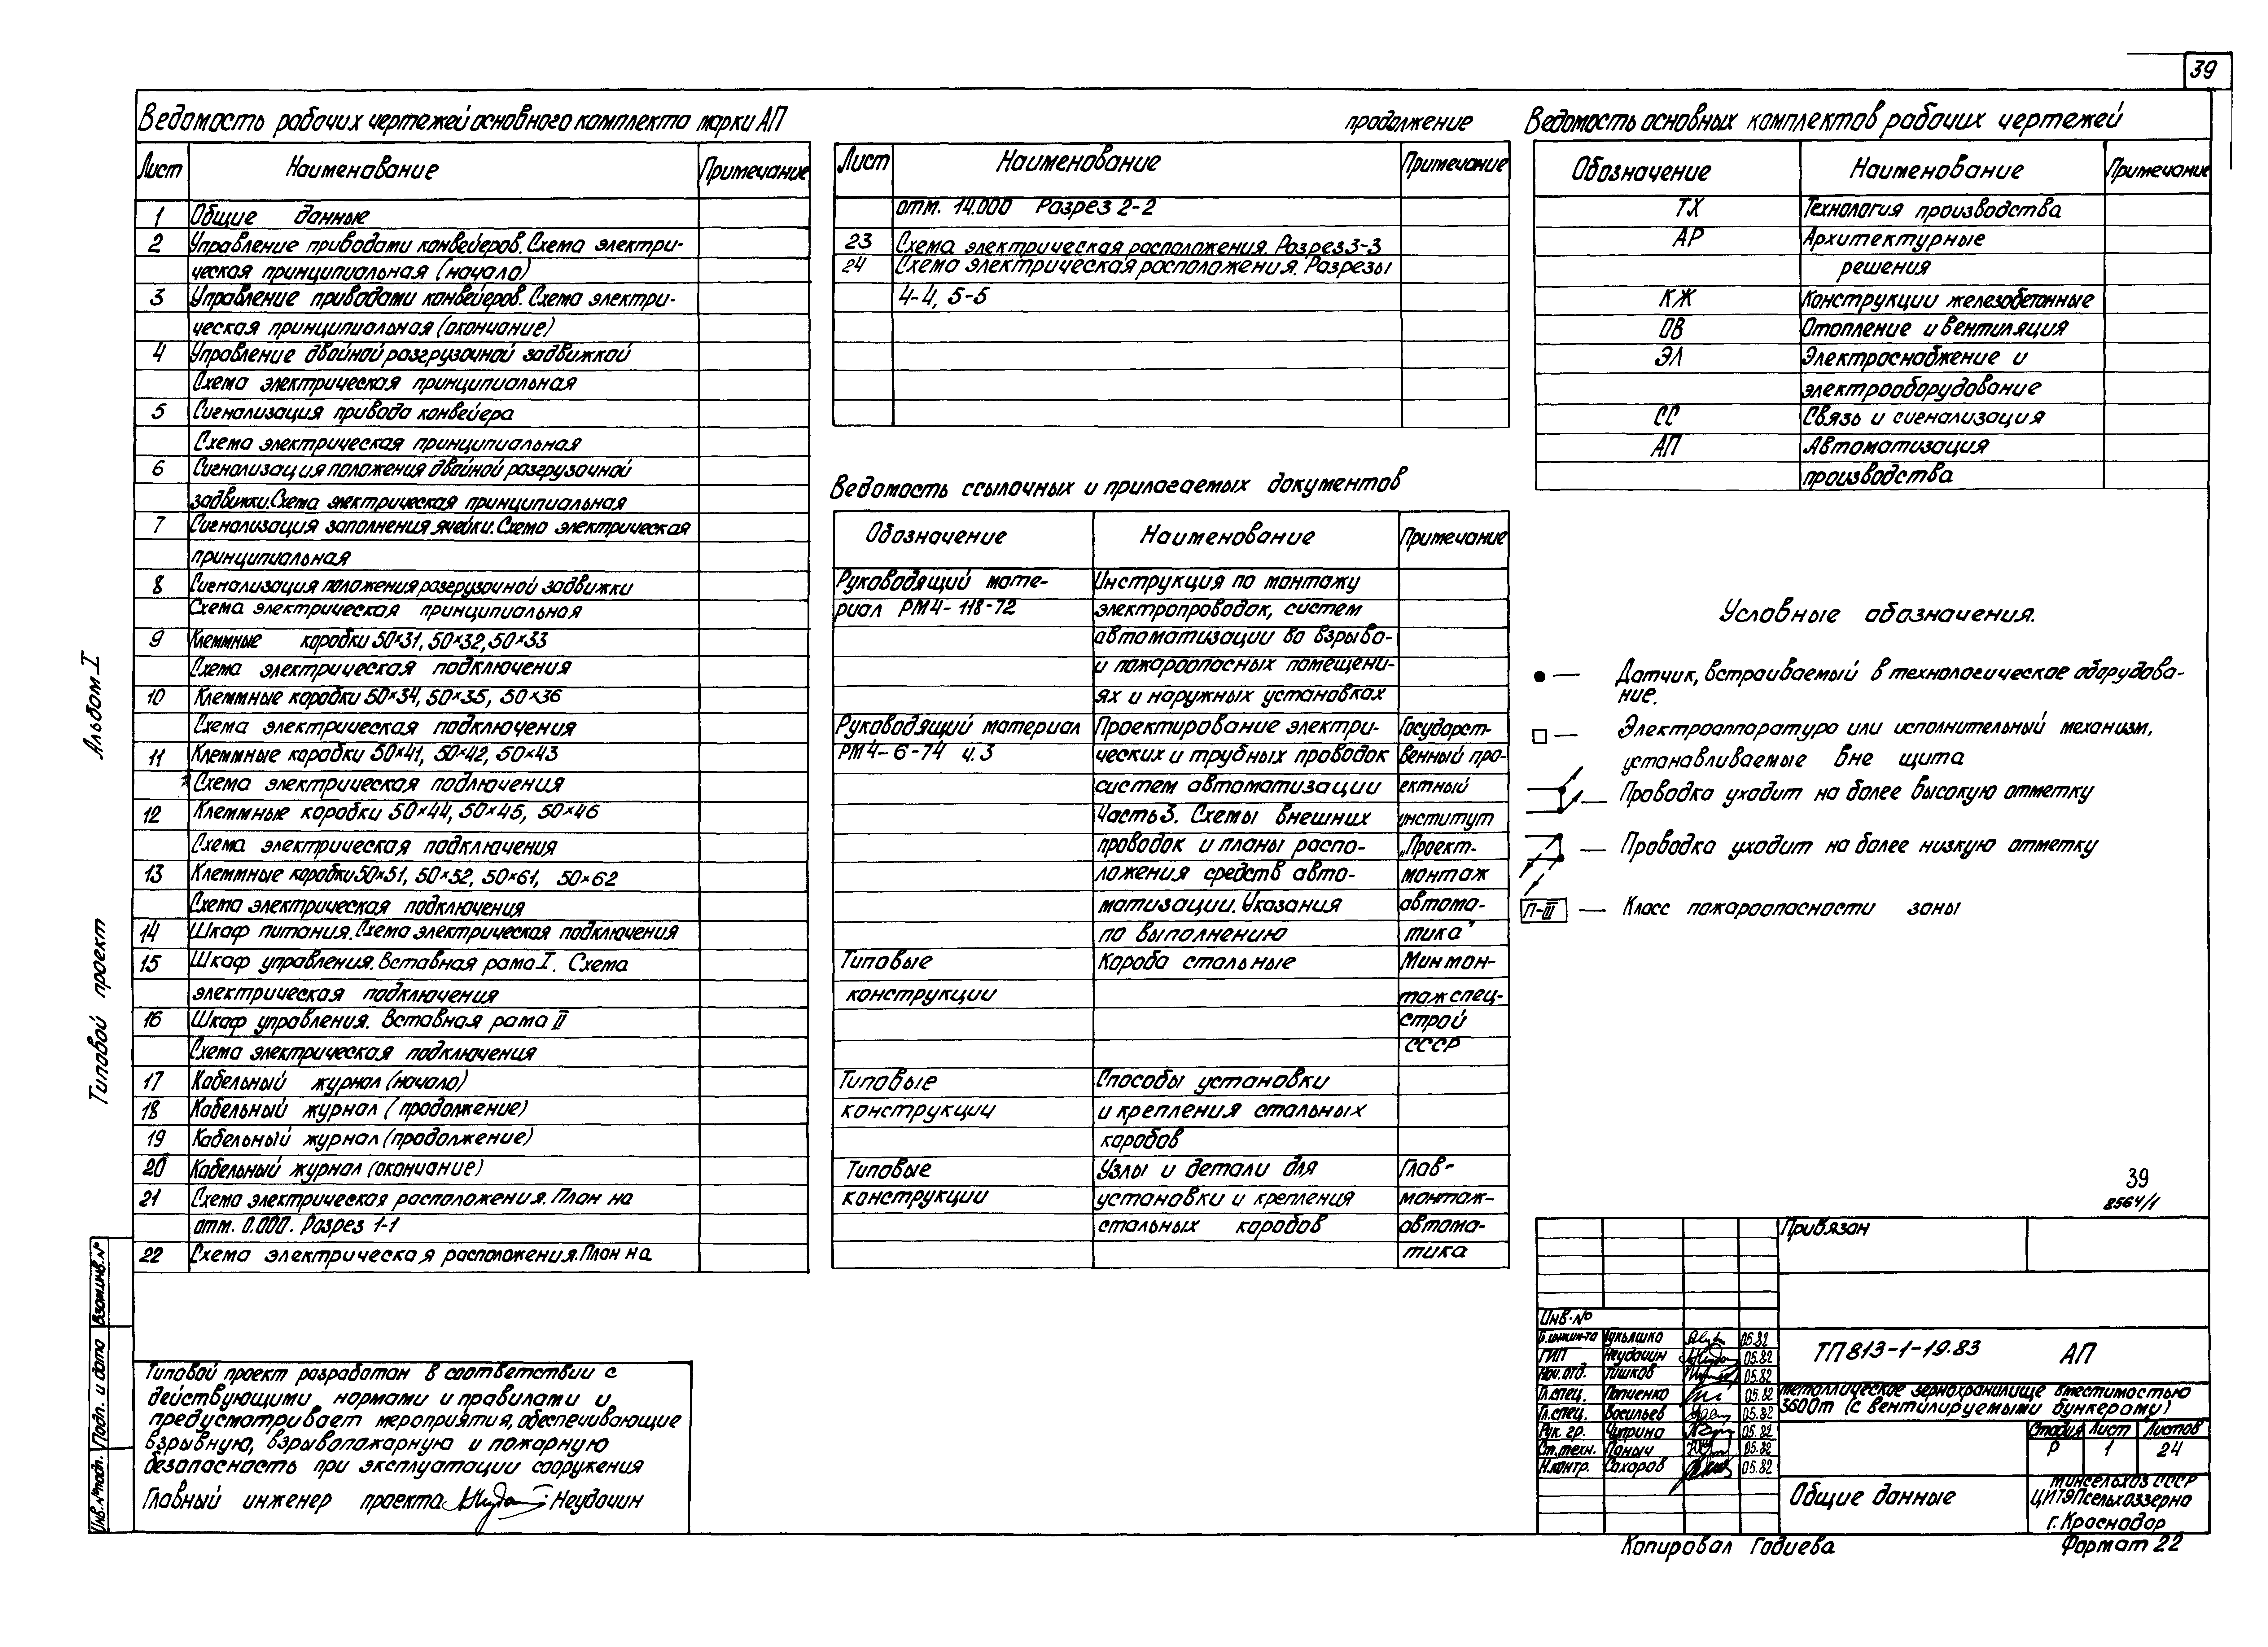 39
Ведомость рабочих чертежей основного комплекта марки АП
Лист Наименование Примечание
1 Общие данные
2 Управление приводами конвейеров. Схема электри-
ческая принципиальная (начало)
3 Управление приводами конвейеров. Схема электри-
ческая принципиальная (окончание)
4 Управление двойной разгрузочной задвижкой
Схема электрическая принципиальная
5 Сигнализация привода конвейера
Схема электрическая принципиальная
6 Сигнализация положения двойной разгрузочной
задвижки. Схема электрическая принципиальная
7 Сигнализация заполнения ячейки. Схема электрическая
принципиальная
8 Сигнализация положения разгрузочной задвижки
Схема электрическая принципиальная
9 Клеммные коробки 50×31, 50×32, 50×33
Схема электрическая подключения
10 Клеммные коробки 50×34, 50×35, 50×36
Схема электрическая подключения
11 Клеммные коробки 50×41, 50×42, 50×43
Схема электрическая подлючения
12 Клеммные коробки 50×44, 50×45, 50×46
Схема электрическая подключения
13 Клеммные коробки 50×51, 50×52, 50×61, 50×62
Схема электрическая подключения
14 Шкаф питания. Схема электрическая подключения
15 Шкаф управления. Вставная рама I. Схема
электрическая подключения
16 Шкаф управления. Вставная рама II
Схема электрическая подключения
17 Кабельный журнал (начало)
18 Кабельный журнал (продолжение)
19 Кабельный журнал (продолжение)
20 Кабельный журнал (окончание)
21 Схема электрическая расположения. План на
отм. 0.000. Разрез 1-1
22 Схема электрическая расположения. План на
продолжение
Лист Наименование Примечание
отм. 14.000 Разрез 2-2
23 Схема электрическая расположения. Разрез 3-3
24 Схема электрическая расположения. Разрезы
4-4, 5-5
Ведомость ссылочных и прилагаемых документов
Обозначение Наименование Примечание
Руководящий мате- Инструкция по монтажу
риал РМ4-118-72 электропроводок, систем
автоматизации во взрыво-
и пожароопасных помещени-
ях и наружных установках
Руководящий материал Проектирование электри- Государст-
РМ4-6-74 ч.3 ческих и трубных проводок венный про-
систем автоматизации ектный
Часть 3. Схемы внешних институт
проводок и планы распо- „Проект-
ложения средств авто- монтаж
матизации. Указания автома-
по выполнению тика"
Типовые Короба стальные Минмон-
конструкции тажспец-
строй
СССР
Типовые Способы установки
конструкции и крепления стальных
коробов
Типовые Узлы и детали для Глав-
конструкции установки и крепления монтаж-
стальных коробов автома-
тика
Ведомость основных комплектов рабочих чертежей
Обозначение Наименование Примечание
ТХ Технология производства
АР Архитектурные
решения
КЖ Конструкции железобетонные
ОВ Отопление и вентиляция
ЭЛ Электроснабжение и
электрооборудование
СС Связь и сигнализация
АП Автоматизация
производства
Условные обозначения.
— Датчик, встраиваемый в технологическое оборудова-
ние.
— Электроаппаратура или исполнительный механизм,
устанавливаемые вне щита
— Проводка уходит на более высокую отметку
— Проводка уходит на более низкую отметку
П-III — Класс пожароопасности зоны
Альбом I
Типовой проект
Взам.инв.№
Подп. и дата
Инв.№подл.
Типовой проект разработан в соответствии с
действующими нормами и правилами и
предусматривает мероприятия, обеспечивающие
взрывную, взрывопожарную и пожарную
безопасность при эксплуатации сооружения
Главный инженер проекта Неудачин
39
8564/1
Привязан
Инв.№
Гл.инжин-та Лукьяшко 05.82
ГИП Неудачин 05.82
Нач.отд. Тишков 05.82
Гл.спец. Попченко 05.82
Гл.спец. Васильев 05.82
Рук. гр. Чуприна 05.82
Ст.техн. Паныч 05.82
Н.контр. Сахаров 05.82
ТП 813-1-19.83 АП
Металлическое зернохранилище вместимостью
3600т (с вентилируемыми бункерами)
Стадия Лист Листов
Р 1 24
Общие данные
Минсельхоз СССР
ЦИТЭПсельхоззерно
г. Краснодар
Копировал Годиева
Формат 22